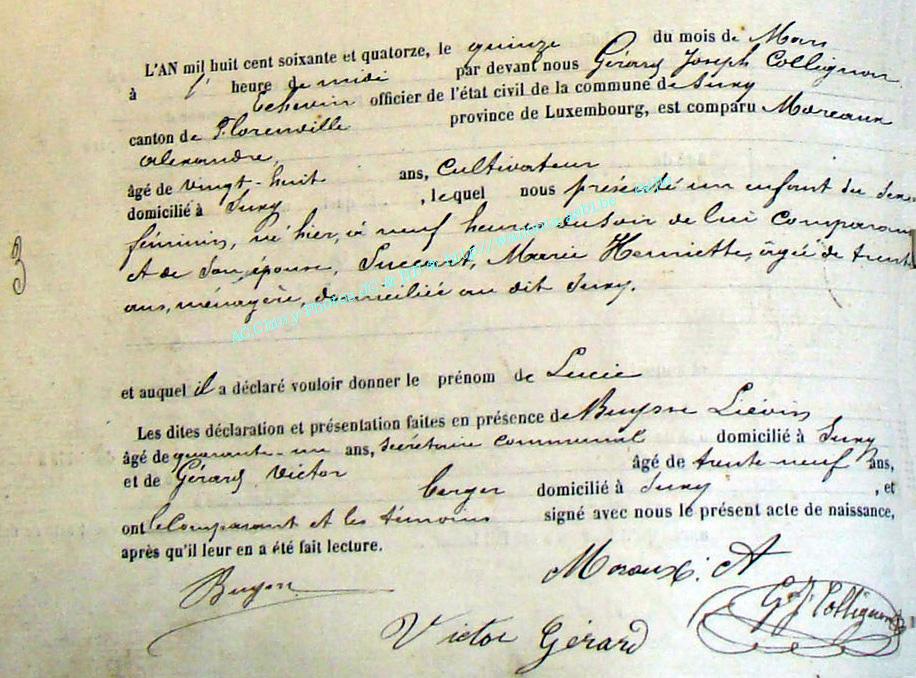 L'AN mil huit cent soixante et quatorze, le quinze du mois de Mars
à 1 heure de midi par devant nous Gérard Joseph Collignon
échevin officier de l'état civil de la commune de Suxy
canton de Florenville province de Luxembourg, est comparu Moreaux
alexandre,
âgé de vingt-huit ans, Cultivateur
domicilié à Suxy, lequel nous présenté un enfant du sexe
féminin, né hier, à neuf heures du soir de lui comparant
et de son épouse, Marie Henriette, âgée de trente
ans, ménagère, domiciliée au dit Suxy.
3
et auquel il a déclaré vouloir donner le prénom de Lucie
Les dites déclaration et présentation faites en présence de Buysse Liévin
âgé de quarante-un ans, secrétaire communal domicilié à Suxy
et de Gérard Victor âgé de trente-neuf ans,
berger domicilié à Suxy, et
ont le comparant et les témoins signé avec nous le présent acte de naissance,
après qu'il leur en a été fait lecture.
Moraux. A
Buysse
G J Collignon
Victor Gérard